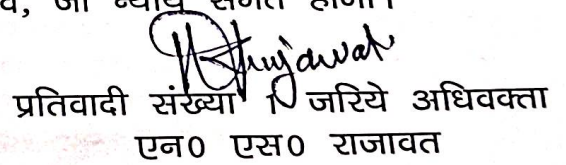 न्याय संगत होगा।
Rujawat
प्रतिवादी संख्या 1 जरिये अधिवक्ता
एन0 एस0 राजावत